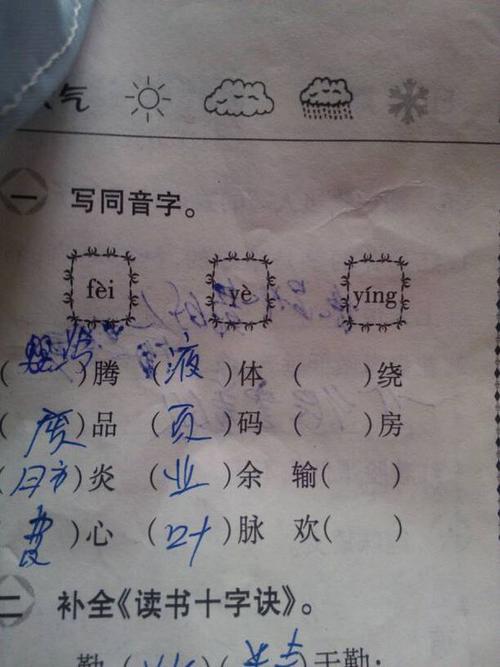 气
一 写同音字。
fèi yè yíng
( )腾 (液)体 ( )绕
(废)品 (页)码 ( )房
(肺)炎 (业)余 输( )
(费)心 (叶)脉 欢( )
二 补全《读书十字诀》。
勤( )( )于勤;